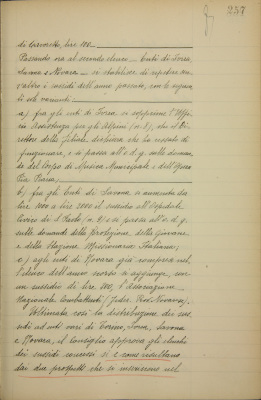 257
di Lavoretti, lire 100.
Passando ora al secondo elenco - Enti di Ivrea,
Savona e Novara - si stabilisce di ripetere sen-
z'altro i sussidi dell'anno passato, con le seguen-
ti sole varianti:
a) fra gli enti di Ivrea si sopprime l'Uffi-
cio Assistenza per gli Alpini (n. 5), che il Di-
rettore della Filiale, dichiara che ha cessato di
funzionare, e si passa all'o. d. g. sulle doman-
de del Corpo di Musica Municipale e dell'Opera
Pia
b) fra gli Enti di Savona si aumenta da
lire 1000 a lire 2000 il sussidio all'Ospedale
Civico di S. Paolo (n. 9) e si passa all'o. d. g.
sulle domande della Protezione della giovane
e della Stazione Missionaria Italiana;
c) agli enti di Novara già compresi nel-
l'elenco dell'anno scorso si aggiunge, con
un sussidio di lire 100, l'Associazione
Nazionale Combattenti (Feder. Prov. Novarese).
Ultimata così la distribuzione dei sus-
sidi ad enti vari di Torino, Ivrea, Savona
e Novara, il Consiglio approva gli elenchi
dei sussidi concessi sì e come risultano
dai due prospetti che si inseriscono nel